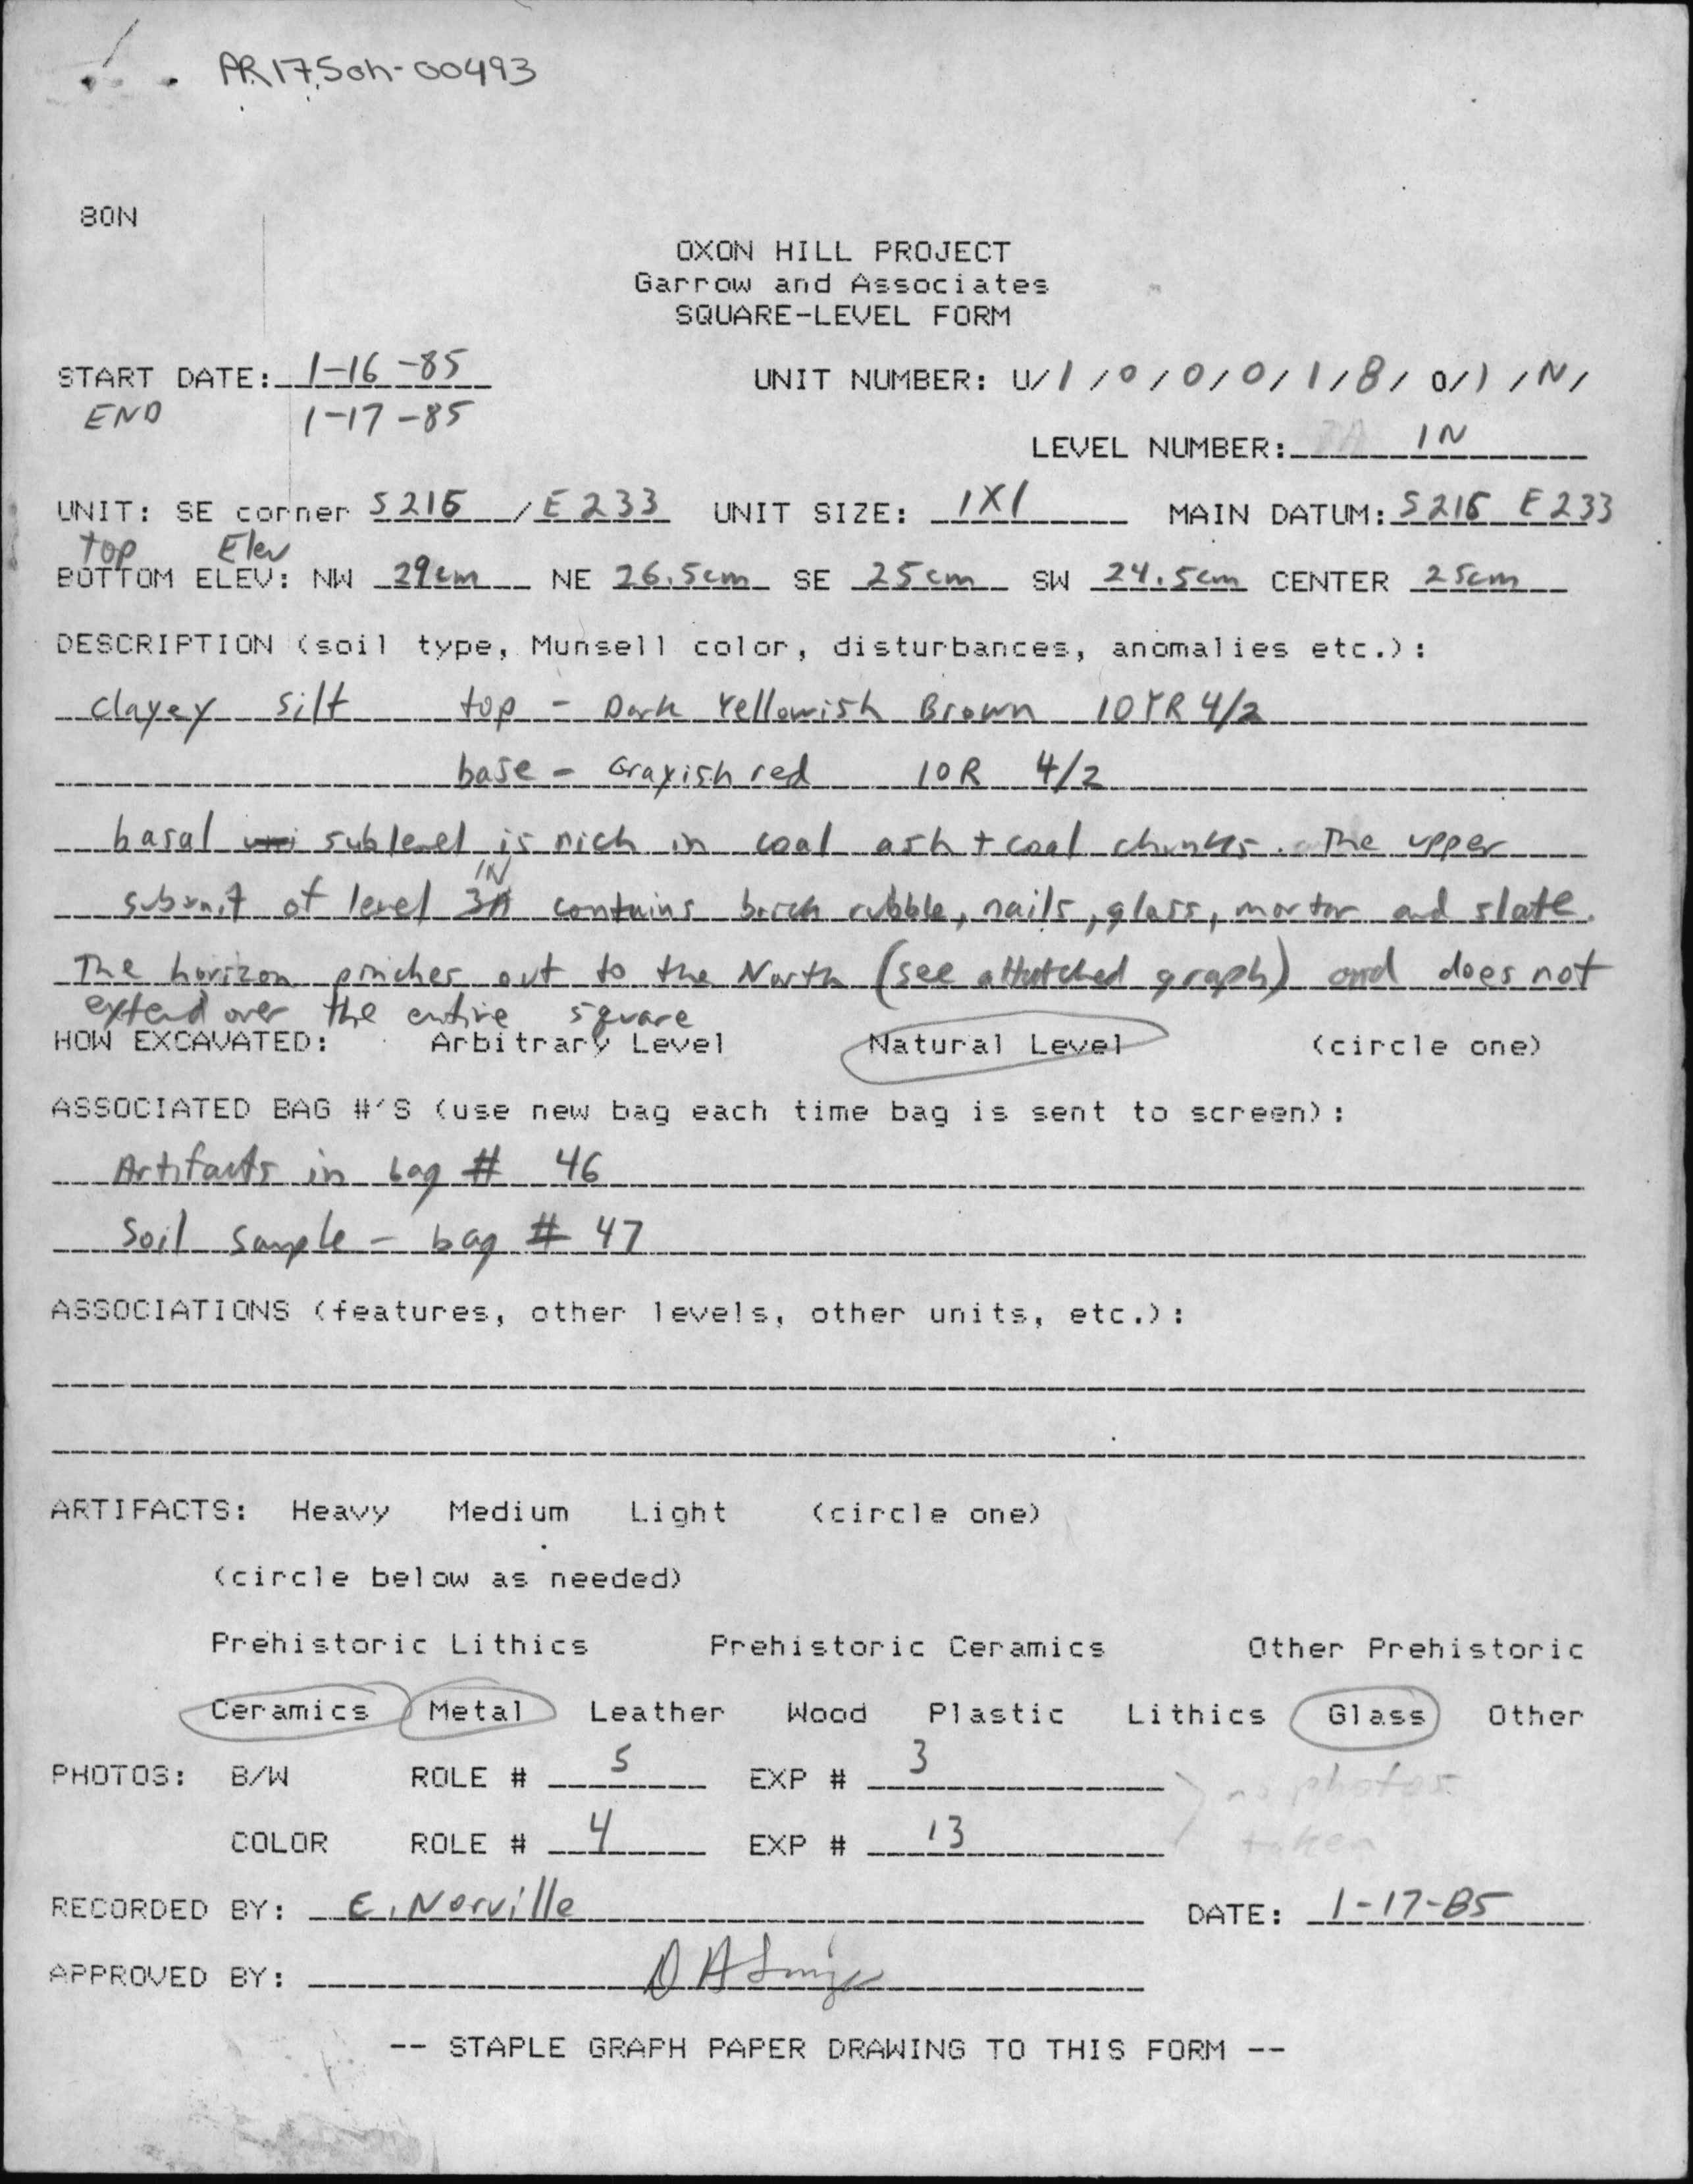 PR175oh-00493
80N
OXON HILL PROJECT
Garrow and Associates
SQUARE-LEVEL FORM
START DATE: 1-16-85 UNIT NUMBER: U/1/0/0/0/1/8/0/1/N/
END 1-17-85
LEVEL NUMBER: 1N
UNIT: SE corner S216 / E233 UNIT SIZE: 1X1 MAIN DATUM: S216 E233
top Elev
BOTTOM ELEV: NW 29cm NE 26.5cm SE 25cm SW 24.5cm CENTER 25cm
DESCRIPTION (soil type, Munsell color, disturbances, anomalies etc.):
clayey silt top - Dark Yellowish Brown 10YR 4/2
base - Grayish red 10R 4/2
basal sublevel is rich in coal ash + coal chunks. The upper
1N
subunit of level 3A contains brick rubble, nails, glass, mortar and slate.
The horizon pinches out to the North (see attatched graph) and does not
extend over the entire square
HOW EXCAVATED: Arbitrary Level Natural Level (circle one)
ASSOCIATED BAG #'S (use new bag each time bag is sent to screen):
Artifacts in bag # 46
Soil sample - bag # 47
ASSOCIATIONS (features, other levels, other units, etc.):
ARTIFACTS: Heavy Medium Light (circle one)
(circle below as needed)
Prehistoric Lithics Prehistoric Ceramics Other Prehistoric
Ceramics Metal Leather Wood Plastic Lithics Glass Other
PHOTOS: B/W ROLE # 5 EXP # 3 no photos
COLOR ROLE # 4 EXP # 13 taken
RECORDED BY: E. Norville DATE: 1-17-85
APPROVED BY:
-- STAPLE GRAPH PAPER DRAWING TO THIS FORM --